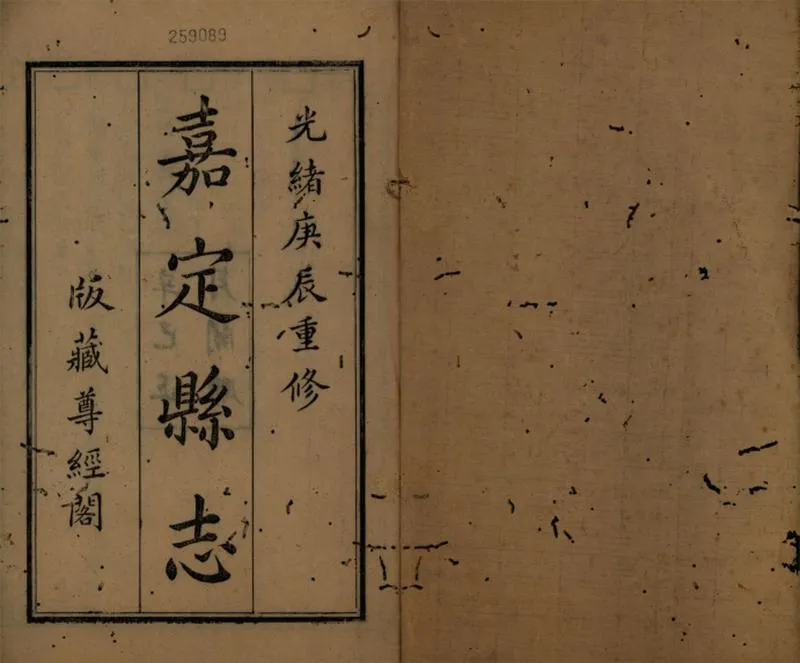 259089
光緒庚辰重修
嘉定縣志
版藏尊經閣